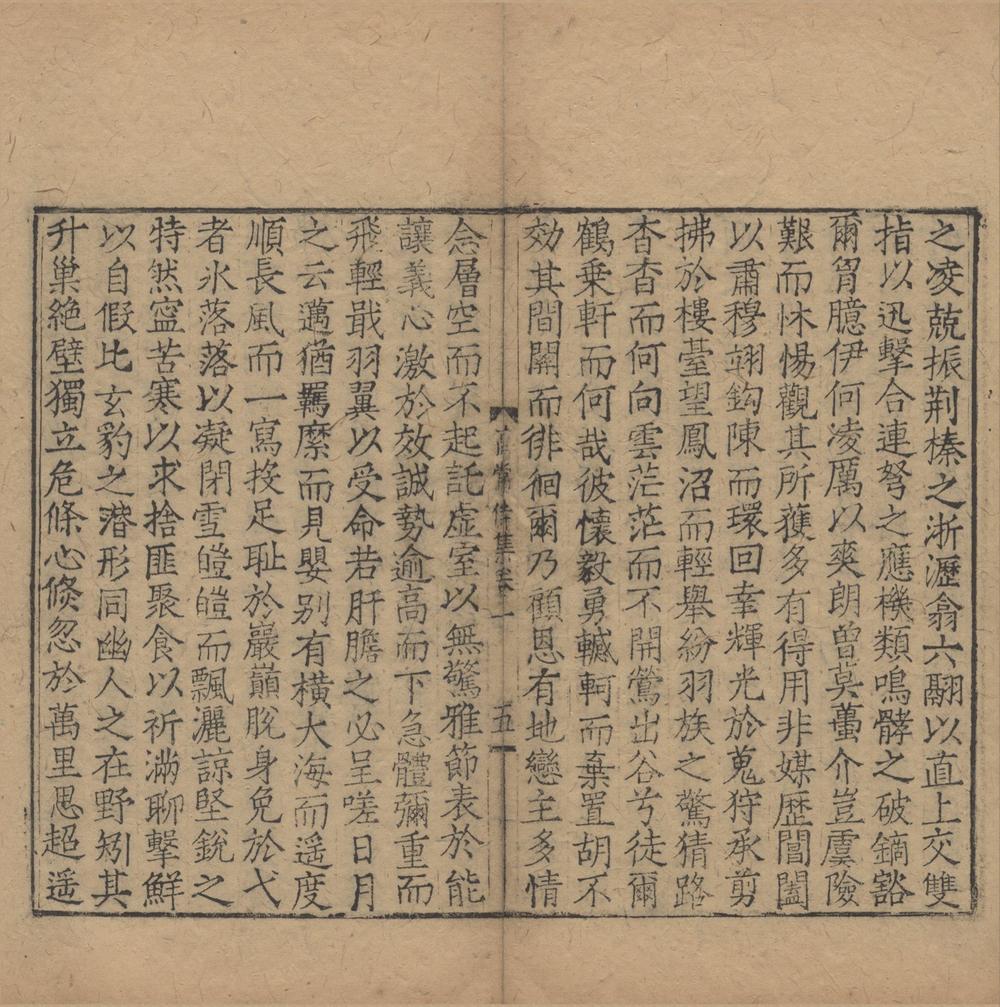 之凌兢振荆榛之淅瀝翕六翮以直上交雙
指以迅擊合連弩之應機類鳴髇之破鏑豁
爾胷臆伊何凌厲以爽朗曽莫蠆介豈虞險
艱而怵惕觀其所獲多有得用非媒歷閶闔
以肅穆翊鈎陳而環回幸輝光於蒐狩承剪
拂於樓臺望鳳沼而輕舉紛羽族之驚猜路
杳杳而何向雲茫茫而不開鶯出谷兮徒爾
鶴乗軒而何哉彼懷毅勇轗軻而棄置胡不
効其間關而徘徊爾乃顧恩有地戀主多情
念層空而不起託虚室以無驚雅節表於能
讓義心激於效誠勢逾高而下急體彌重而
飛輕戢羽翼以受命若肝膽之必呈嗟日月
之云邁猶羈縻而見嬰别有横大海而遥度
順長風而一寫投足耻於巖巔脫身免於弋
者氷落落以凝閉雪皚皚而飄灑諒堅銳之
特然寍苦寒以求捨匪聚食以祈滿聊擊鮮
以自假比玄豹之潛形同幽人之在野矧其
升巢絶壁獨立危條心倏忽於萬里思超遥
髙常侍集卷一
五